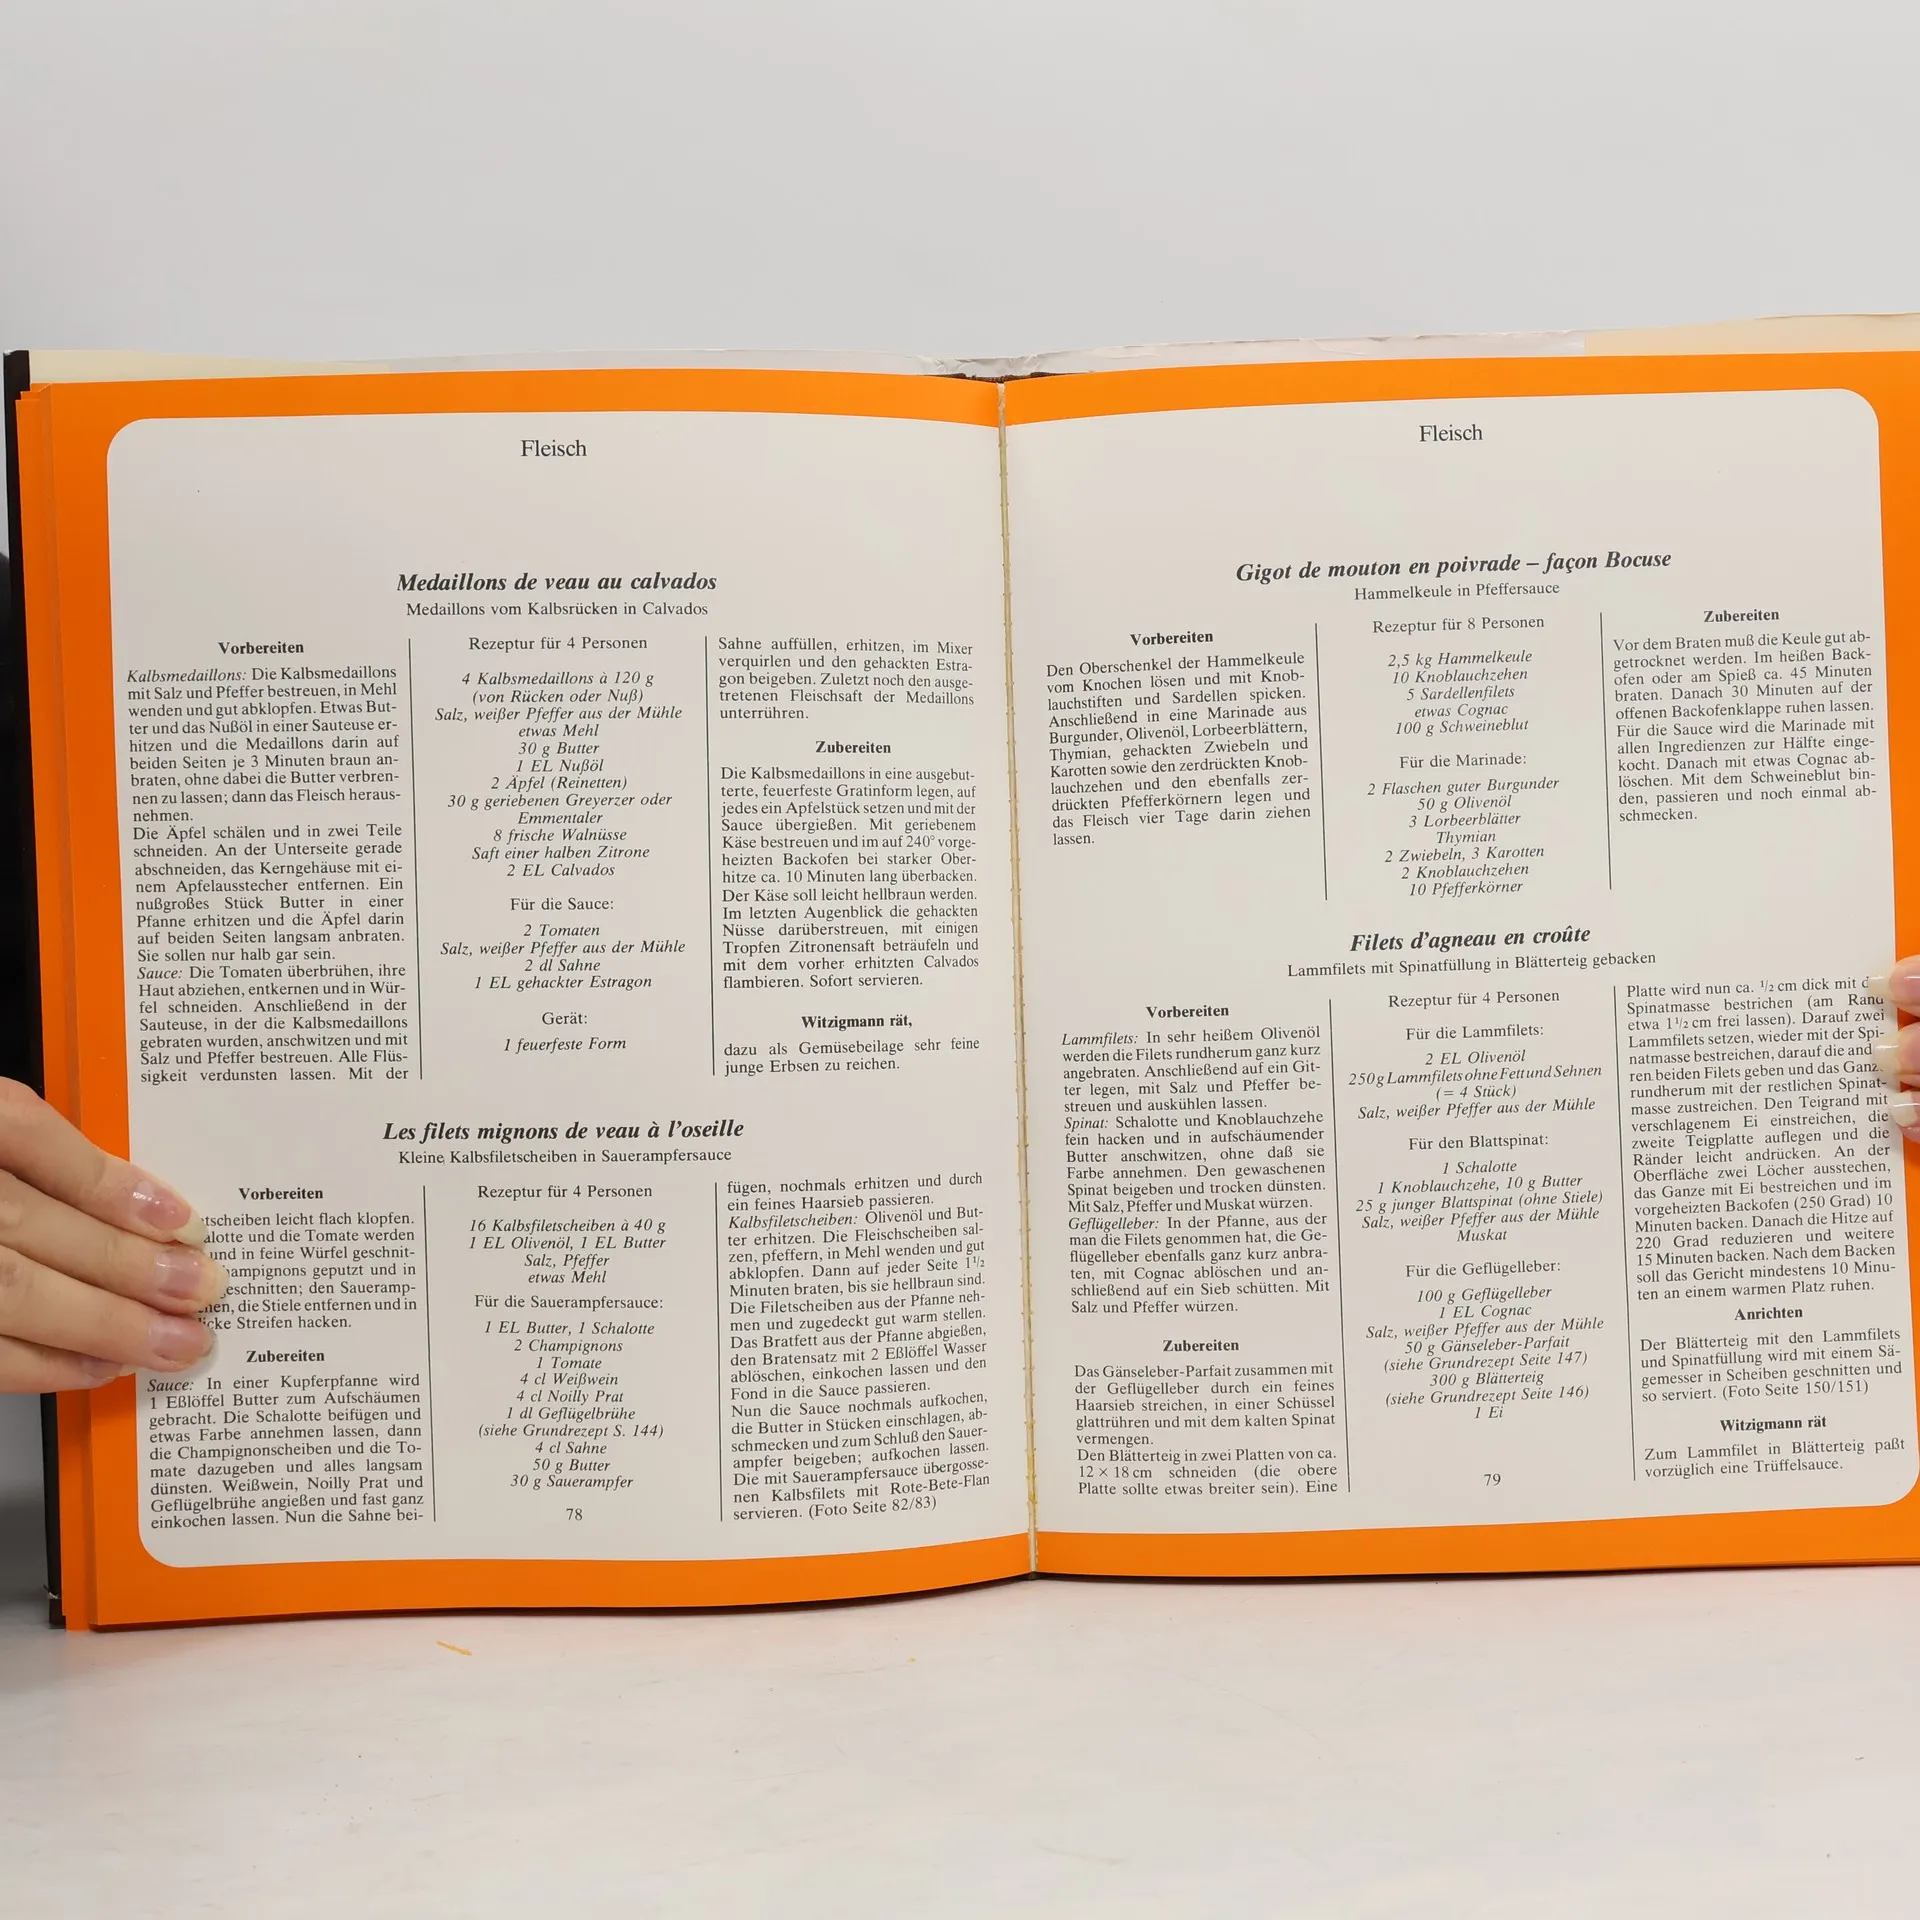 Fleisch
Medaillons de veau au calvados
Medaillons vom Kalbsrücken in Calvados
Vorbereiten
Kalbsmedaillons: Die Kalbsmedaillons
mit Salz und Pfeffer bestreuen, in Mehl
wenden und gut abklopfen. Etwas But-
ter und das Nußöl in einer Sauteuse er-
hitzen und die Medaillons darin auf
beiden Seiten je 3 Minuten braun an-
braten, ohne dabei die Butter verbren-
nen zu lassen; dann das Fleisch heraus-
nehmen.
Die Äpfel schälen und in zwei Teile
schneiden. An der Unterseite gerade
abschneiden, das Kerngehäuse mit ei-
nem Apfelausstecher entfernen. Ein
nußgroßes Stück Butter in einer
Pfanne erhitzen und die Äpfel darin
auf beiden Seiten langsam anbraten.
Sie sollen nur halb gar sein.
Sauce: Die Tomaten überbrühen, ihre
Haut abziehen, entkernen und in Wür-
fel schneiden. Anschließend in der
Sauteuse, in der die Kalbsmedaillons
gebraten wurden, anschwitzen und mit
Salz und Pfeffer bestreuen. Alle Flüs-
sigkeit verdunsten lassen. Mit der
Rezeptur für 4 Personen
4 Kalbsmedaillons à 120 g
(von Rücken oder Nuß)
Salz, weißer Pfeffer aus der Mühle
etwas Mehl
30 g Butter
1 EL Nußöl
2 Äpfel (Reinetten)
30 g geriebenen Greyerzer oder
Emmentaler
8 frische Walnüsse
Saft einer halben Zitrone
2 EL Calvados
Für die Sauce:
2 Tomaten
Salz, weißer Pfeffer aus der Mühle
2 dl Sahne
1 EL gehackter Estragon
Gerät:
1 feuerfeste Form
Sahne auffüllen, erhitzen, im Mixer
verquirlen und den gehackten Estra-
gon beigeben. Zuletzt noch den ausge-
tretenen Fleischsaft der Medaillons
unterrühren.
Zubereiten
Die Kalbsmedaillons in eine ausgebut-
terte, feuerfeste Gratinform legen, auf
jedes ein Apfelstück setzen und mit der
Sauce übergießen. Mit geriebenem
Käse bestreuen und im auf 240° vorge-
heizten Backofen bei starker Ober-
hitze ca. 10 Minuten lang überbacken.
Der Käse soll leicht hellbraun werden.
Im letzten Augenblick die gehackten
Nüsse darüberstreuen, mit einigen
Tropfen Zitronensaft beträufeln und
mit dem vorher erhitzten Calvados
flambieren. Sofort servieren.
Witzigmann rät,
dazu als Gemüsebeilage sehr feine
junge Erbsen zu reichen.
Les filets mignons de veau à l'oseille
Kleine Kalbsfiletscheiben in Sauerampfersauce
Vorbereiten
tscheiben leicht flach klopfen.
alotte und die Tomate werden
und in feine Würfel geschnit-
hampignons geputzt und in
geschnitten; den Saueramp-
hen, die Stiele entfernen und in
licke Streifen hacken.
Zubereiten
Sauce: In einer Kupferpfanne wird
1 Eßlöffel Butter zum Aufschäumen
gebracht. Die Schalotte beifügen und
etwas Farbe annehmen lassen, dann
die Champignonscheiben und die To-
mate dazugeben und alles langsam
dünsten. Weißwein, Noilly Prat und
Geflügelbrühe angießen und fast ganz
einkochen lassen. Nun die Sahne bei-
Rezeptur für 4 Personen
16 Kalbsfiletscheiben à 40 g
1 EL Olivenöl, 1 EL Butter
Salz, Pfeffer
etwas Mehl
Für die Sauerampfersauce:
1 EL Butter, 1 Schalotte
2 Champignons
1 Tomate
4 cl Weißwein
4 cl Noilly Prat
1 dl Geflügelbrühe
(siehe Grundrezept S. 144)
4 cl Sahne
50 g Butter
30 g Sauerampfer
78
fügen, nochmals erhitzen und durch
ein feines Haarsieb passieren.
Kalbsfiletscheiben: Olivenöl und But-
ter erhitzen. Die Fleischscheiben sal-
zen, pfeffern, in Mehl wenden und gut
abklopfen. Dann auf jeder Seite 1 1/2
Minuten braten, bis sie hellbraun sind.
Die Filetscheiben aus der Pfanne neh-
men und zugedeckt gut warm stellen.
Das Bratfett aus der Pfanne abgießen,
den Bratensatz mit 2 Eßlöffel Wasser
ablöschen, einkochen lassen und den
Fond in die Sauce passieren.
Nun die Sauce nochmals aufkochen,
die Butter in Stücken einschlagen, ab-
schmecken und zum Schluß den Sauer-
ampfer beigeben; aufkochen lassen.
Die mit Sauerampfersauce übergosse-
nen Kalbsfilets mit Rote-Bete-Flan
servieren. (Foto Seite 82/83)
Fleisch
Gigot de mouton en poivrade – façon Bocuse
Hammelkeule in Pfeffersauce
Vorbereiten
Den Oberschenkel der Hammelkeule
vom Knochen lösen und mit Knob-
lauchstiften und Sardellen spicken.
Anschließend in eine Marinade aus
Burgunder, Olivenöl, Lorbeerblättern,
Thymian, gehackten Zwiebeln und
Karotten sowie den zerdrückten Knob-
lauchzehen und den ebenfalls zer-
drückten Pfefferkörnern legen und
das Fleisch vier Tage darin ziehen
lassen.
Rezeptur für 8 Personen
2,5 kg Hammelkeule
10 Knoblauchzehen
5 Sardellenfilets
etwas Cognac
100 g Schweineblut
Für die Marinade:
2 Flaschen guter Burgunder
50 g Olivenöl
3 Lorbeerblätter
Thymian
2 Zwiebeln, 3 Karotten
2 Knoblauchzehen
10 Pfefferkörner
Zubereiten
Vor dem Braten muß die Keule gut ab-
getrocknet werden. Im heißen Back-
ofen oder am Spieß ca. 45 Minuten
braten. Danach 30 Minuten auf der
offenen Backofenklappe ruhen lassen.
Für die Sauce wird die Marinade mit
allen Ingredienzen zur Hälfte einge-
kocht. Danach mit etwas Cognac ab-
löschen. Mit dem Schweineblut bin-
den, passieren und noch einmal ab-
schmecken.
Filets d'agneau en croûte
Lammfilets mit Spinatfüllung in Blätterteig gebacken
Vorbereiten
Lammfilets: In sehr heißem Olivenöl
werden die Filets rundherum ganz kurz
angebraten. Anschließend auf ein Git-
ter legen, mit Salz und Pfeffer be-
streuen und auskühlen lassen.
Spinat: Schalotte und Knoblauchzehe
fein hacken und in aufschäumender
Butter anschwitzen, ohne daß sie
Farbe annehmen. Den gewaschenen
Spinat beigeben und trocken dünsten.
Mit Salz, Pfeffer und Muskat würzen.
Geflügelleber: In der Pfanne, aus der
man die Filets genommen hat, die Ge-
flügelleber ebenfalls ganz kurz anbra-
ten, mit Cognac ablöschen und an-
schließend auf ein Sieb schütten. Mit
Salz und Pfeffer würzen.
Zubereiten
Das Gänseleber-Parfait zusammen mit
der Geflügelleber durch ein feines
Haarsieb streichen, in einer Schüssel
glattrühren und mit dem kalten Spinat
vermengen.
Den Blätterteig in zwei Platten von ca.
12 × 18 cm schneiden (die obere
Platte sollte etwas breiter sein). Eine
Rezeptur für 4 Personen
Für die Lammfilets:
2 EL Olivenöl
250 g Lammfilets ohne Fett und Sehnen
(= 4 Stück)
Salz, weißer Pfeffer aus der Mühle
Für den Blattspinat:
1 Schalotte
1 Knoblauchzehe, 10 g Butter
25 g junger Blattspinat (ohne Stiele)
Salz, weißer Pfeffer aus der Mühle
Muskat
Für die Geflügelleber:
100 g Geflügelleber
1 EL Cognac
Salz, weißer Pfeffer aus der Mühle
50 g Gänseleber-Parfait
(siehe Grundrezept Seite 147)
300 g Blätterteig
(siehe Grundrezept Seite 146)
1 Ei
79
Platte wird nun ca. 1/2 cm dick mit d
Spinatmasse bestrichen (am Rand
etwa 1 1/2 cm frei lassen). Darauf zwei
Lammfilets setzen, wieder mit der Spi-
natmasse bestreichen, darauf die and
ren beiden Filets geben und das Ganz
rundherum mit der restlichen Spinat-
masse zustreichen. Den Teigrand mit
verschlagenem Ei einstreichen, die
zweite Teigplatte auflegen und die
Ränder leicht andrücken. An der
Oberfläche zwei Löcher ausstechen,
das Ganze mit Ei bestreichen und im
vorgeheizten Backofen (250 Grad) 10
Minuten backen. Danach die Hitze auf
220 Grad reduzieren und weitere
15 Minuten backen. Nach dem Backen
soll das Gericht mindestens 10 Minu-
ten an einem warmen Platz ruhen.
Anrichten
Der Blätterteig mit den Lammfilets
und Spinatfüllung wird mit einem Sä-
gemesser in Scheiben geschnitten und
so serviert. (Foto Seite 150/151)
Witzigmann rät
Zum Lammfilet in Blätterteig paßt
vorzüglich eine Trüffelsauce.